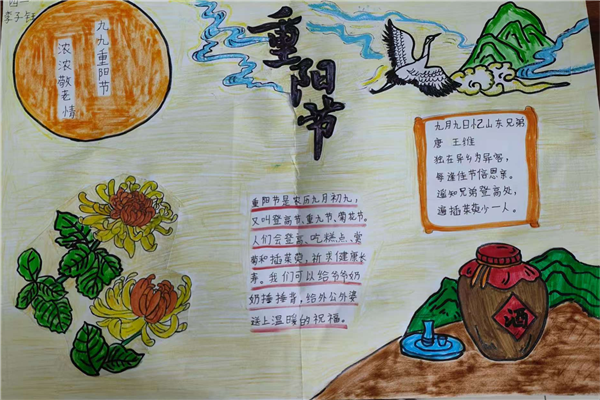 四一
九九重阳节
浓浓敬老情
重阳节
九月九日忆山东兄弟
唐 王维
独在异乡为异客，
每逢佳节倍思亲。
遥知兄弟登高处，
遍插茱萸少一人。
重阳节是农历九月初九，
又叫登高节、重九节、菊花节。
人们会登高、吃糕点、赏
菊和插茱萸，祈求健康长
寿。我们可以给爷爷奶
奶捶捶背，给外公外婆
送上温暖的祝福。
酒